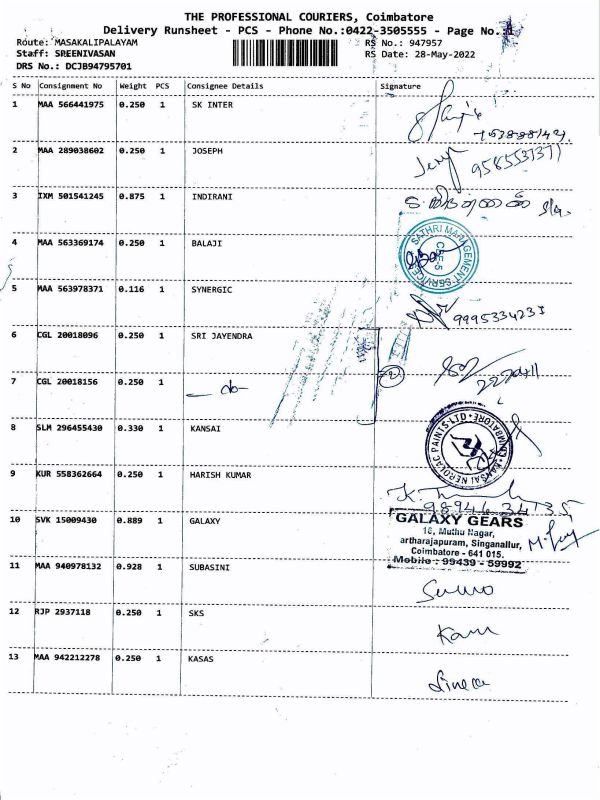 THE PROFESSIONAL COURIERS, Coimbatore
Delivery Runsheet - PCS - Phone No.:0422-3505555 - Page No.:1
Route: MASAKALIPALAYAM RS No.: 947957
Staff: SREENIVASAN RS Date: 28-May-2022
DRS No.: DCJB94795701
S No Consignment No Weight PCS Consignee Details Signature
1 MAA 566441975 0.250 1 SK INTER
2 MAA 289038602 0.250 1 JOSEPH
3 IXM 501541245 0.875 1 INDIRANI
4 MAA 563369174 0.250 1 BALAJI
SATHRI MANAGEMENT SERVICES
CBE-5
5 MAA 563978371 0.116 1 SYNERGIC
6 CGL 20018096 0.250 1 SRI JAYENDRA
7 CGL 20018156 0.250 1 - do -
2
8 SLM 296455430 0.330 1 KANSAI
KANSAI NEROLAC PAINTS LTD
COIMBATORE
9 KUR 558362664 0.250 1 HARISH KUMAR
98946 34735
10 SVK 15009430 0.889 1 GALAXY
GALAXY GEARS
18, Muthu Nagar,
artharajapuram, Singanallur,
Coimbatore - 641 015.
Mobile : 99439 - 59992
11 MAA 940978132 0.928 1 SUBASINI
12 RJP 2937118 0.250 1 SKS
13 MAA 942212278 0.250 1 KASAS